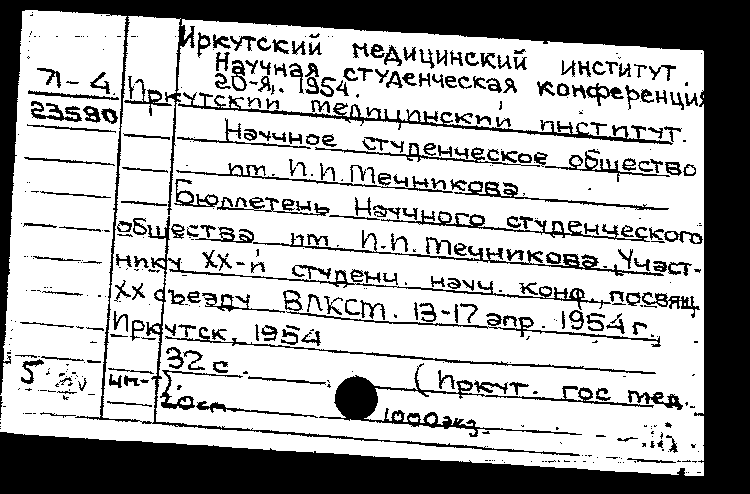 Иркутский медицинский институт.
Научная студенческая конференция
20-я. 1954.
Л-4 Иркутский медицинский институт.
23590
Научное студенческое общество
им. И.И. Мечникова.
Бюллетень Научного студенческого
общества им. И.И. Мечникова. Участ-
нику XX-й студенч. науч. конф., посвящ.
XX съезду ВЛКСМ. 13-17 апр. 1954 г.,
Иркутск, 1954
32 с. (Иркут. гос мед.
5 ин-т).
20см. 1000экз.